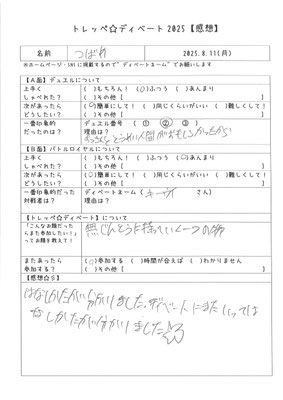 トレッペ☆ディベート2025【感想】
名前 つばめ 2025.8.11(月)
※ホームページ・SNSに掲載するので"ディベートネーム"でお願いします
【A面】デュエルについて
上手く しゃべれた? ( )もちろん! (○)ふつう ( )あんまり
( )その他[ ]
次があったら どうしたい? (○)簡単にして! ( )同じくらいがいい ( )難しくして!
( )その他[ ]
一番印象的 だったのは? デュエル番号 ( ① ② ③ )
理由は?
とうめい人間がおもしろかったから
【B面】バトルロイヤルについて
上手く しゃべれた? ( )もちろん! ( )ふつう (○)あんまり
( )その他[ ]
次があったら どうしたい? (○)簡単にして! ( )同じくらいがいい ( )難しくして!
( )その他[ ]
一番印象的だった 対戦者は? ディベートネーム( キーウィ さん)
理由は?
【トレッペ☆ディベート】について
「こんなお題だったら また参加したい!」ってお題を教えて! 無じんとうに持っていく一つの物
またあったら 参加する? (○)参加する ( )時間が合えば ( )わかりません
( )その他[ ]
【感想☆彡】
はなしかたが分かりました。ディベートにまた
しかたが分かりました